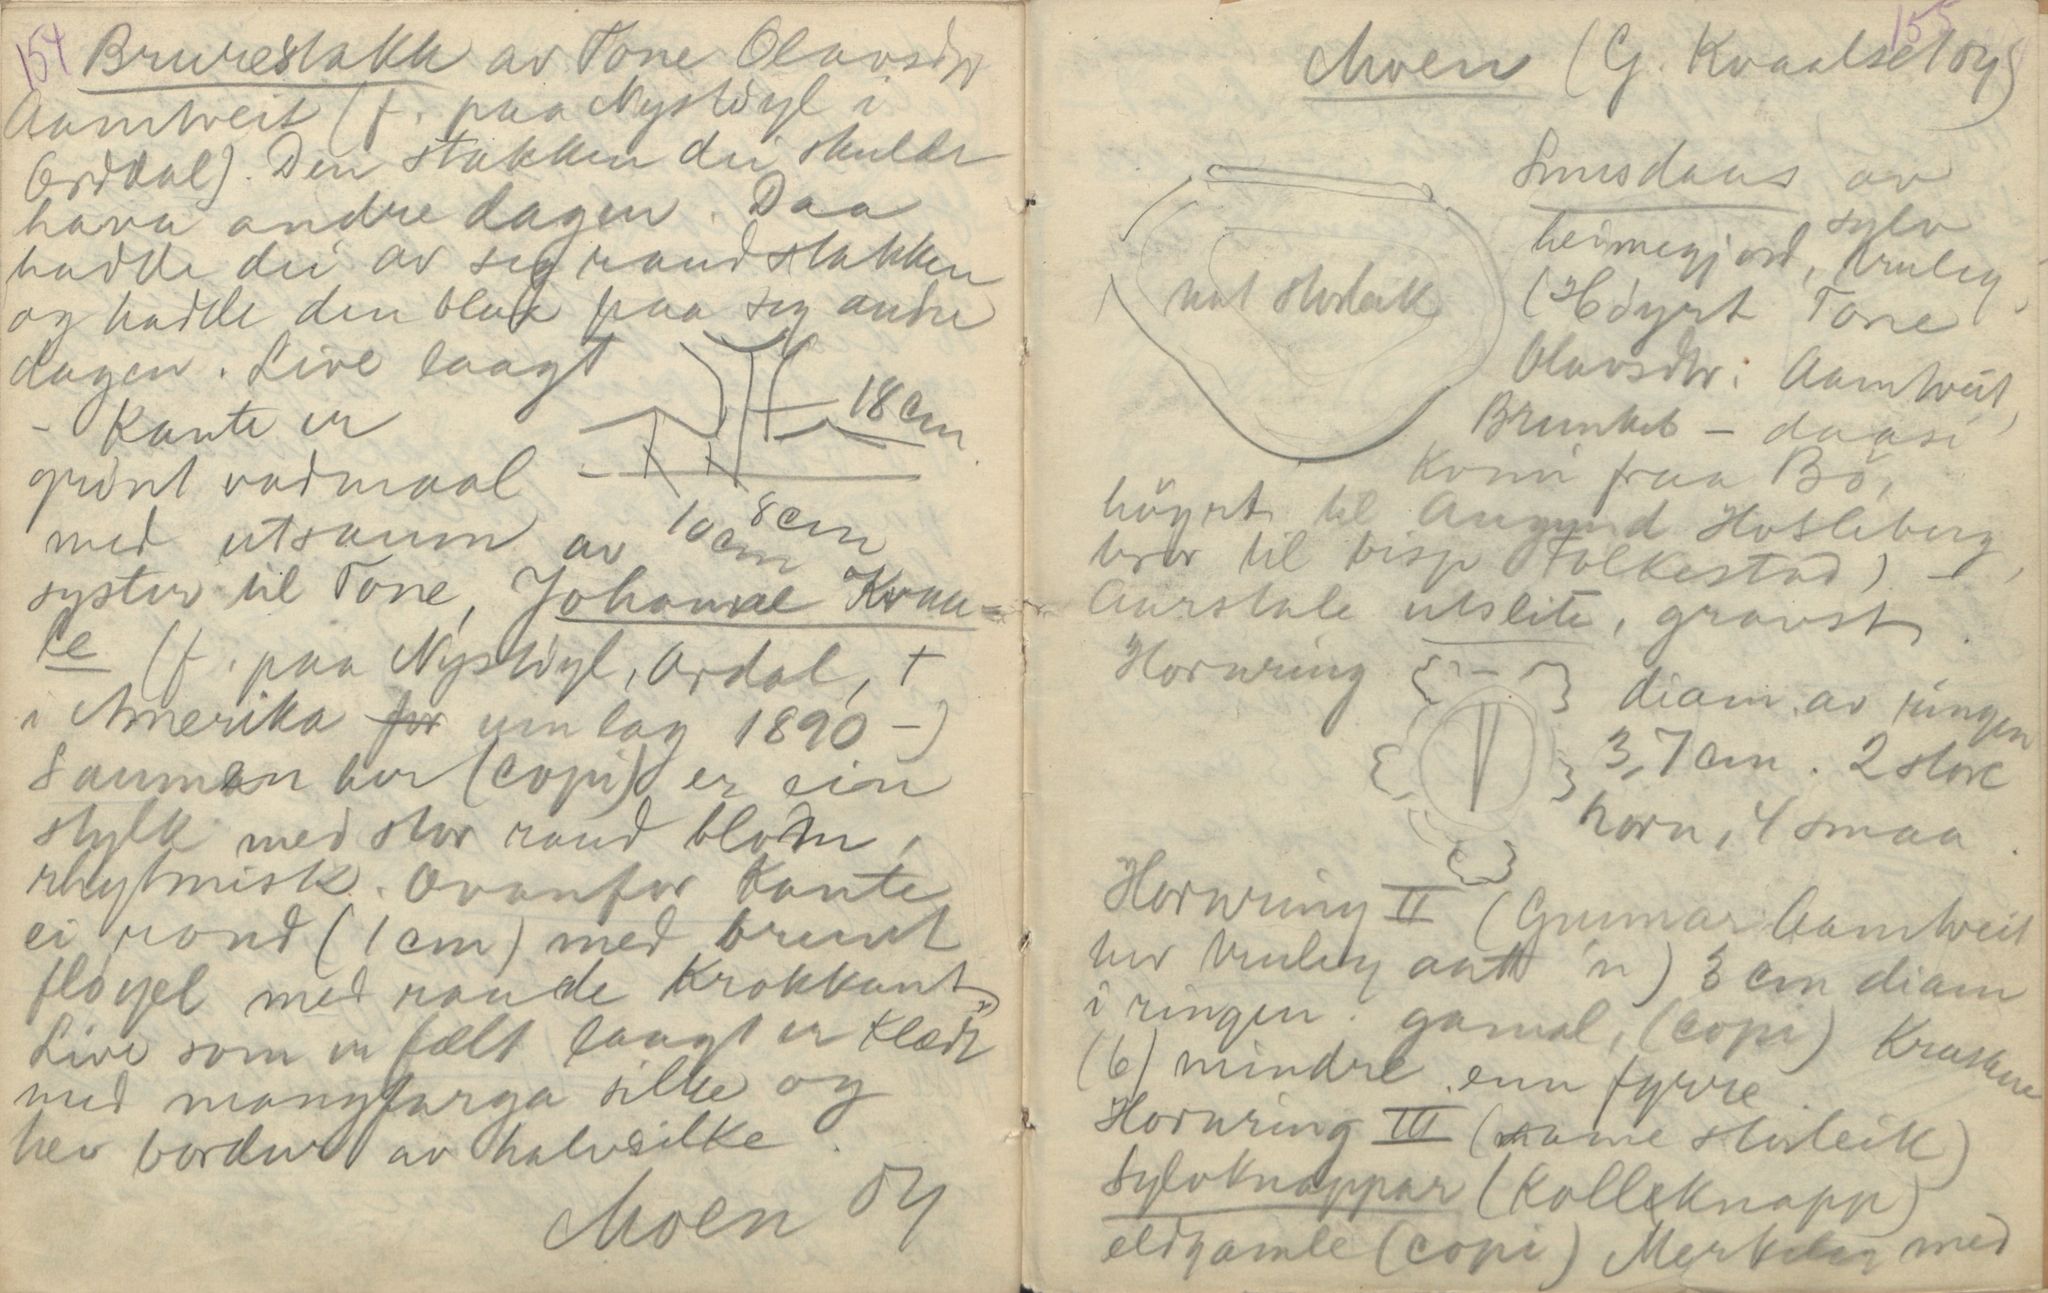 154
Brurestakk av Tone Olavsdtr
Aamtveit (f. paa Nystöyl i
Orddal). Den stakken dei skulde
hava andre dagen. Daa
hadde dei av seg raudstakken
og hadde den blaa paa seg andre
dagen. Live laagt
18 cm
- Kante er
grönt vadmaal
med utsaum av
10 cm 8 cm
syster til Tone, Johanne Kvaa-
le (f. paa Nystöyl, Ordal, †
i Amerika for umlag 1890 -)
Saumen her (copi) er ein
stylk med stor raud blom,
rhytmisk. Ovanfor Kante
ei rond (1 cm) med brunt
flöyel med raude Krokkant,
Live som er fælt laagt er klædt
med mangfarga silke og
hev bordur av halvsilke.
Moen
155
Moen (G. Kvaalsetöy)
Snusdaas av
sylv
heimegjord, truleg.
nat storleik
(Höyrt Tone
Olavsdtr: Aamtveit,
Brunkeb - daasi
Komi fraa Bö,
höyrt til Aurgund Hotleberg,
bror til bisp Folkestad) -
Aarstale utsleite, gravst.
Hornring
diam. av ringen
3,7 cm. 2 store
horn, 4 smaa.
Hornring II (Gunnar Aamtveit
hev truleg aatt 'n) 3 cm diam
i ringen. gamal, (copi) Kruskune
(6) mindre enn fyrre
Hornring III (same storleik)
Sylvknappar (Kolleknapp)
eldgamle (copi) Merkeleg med